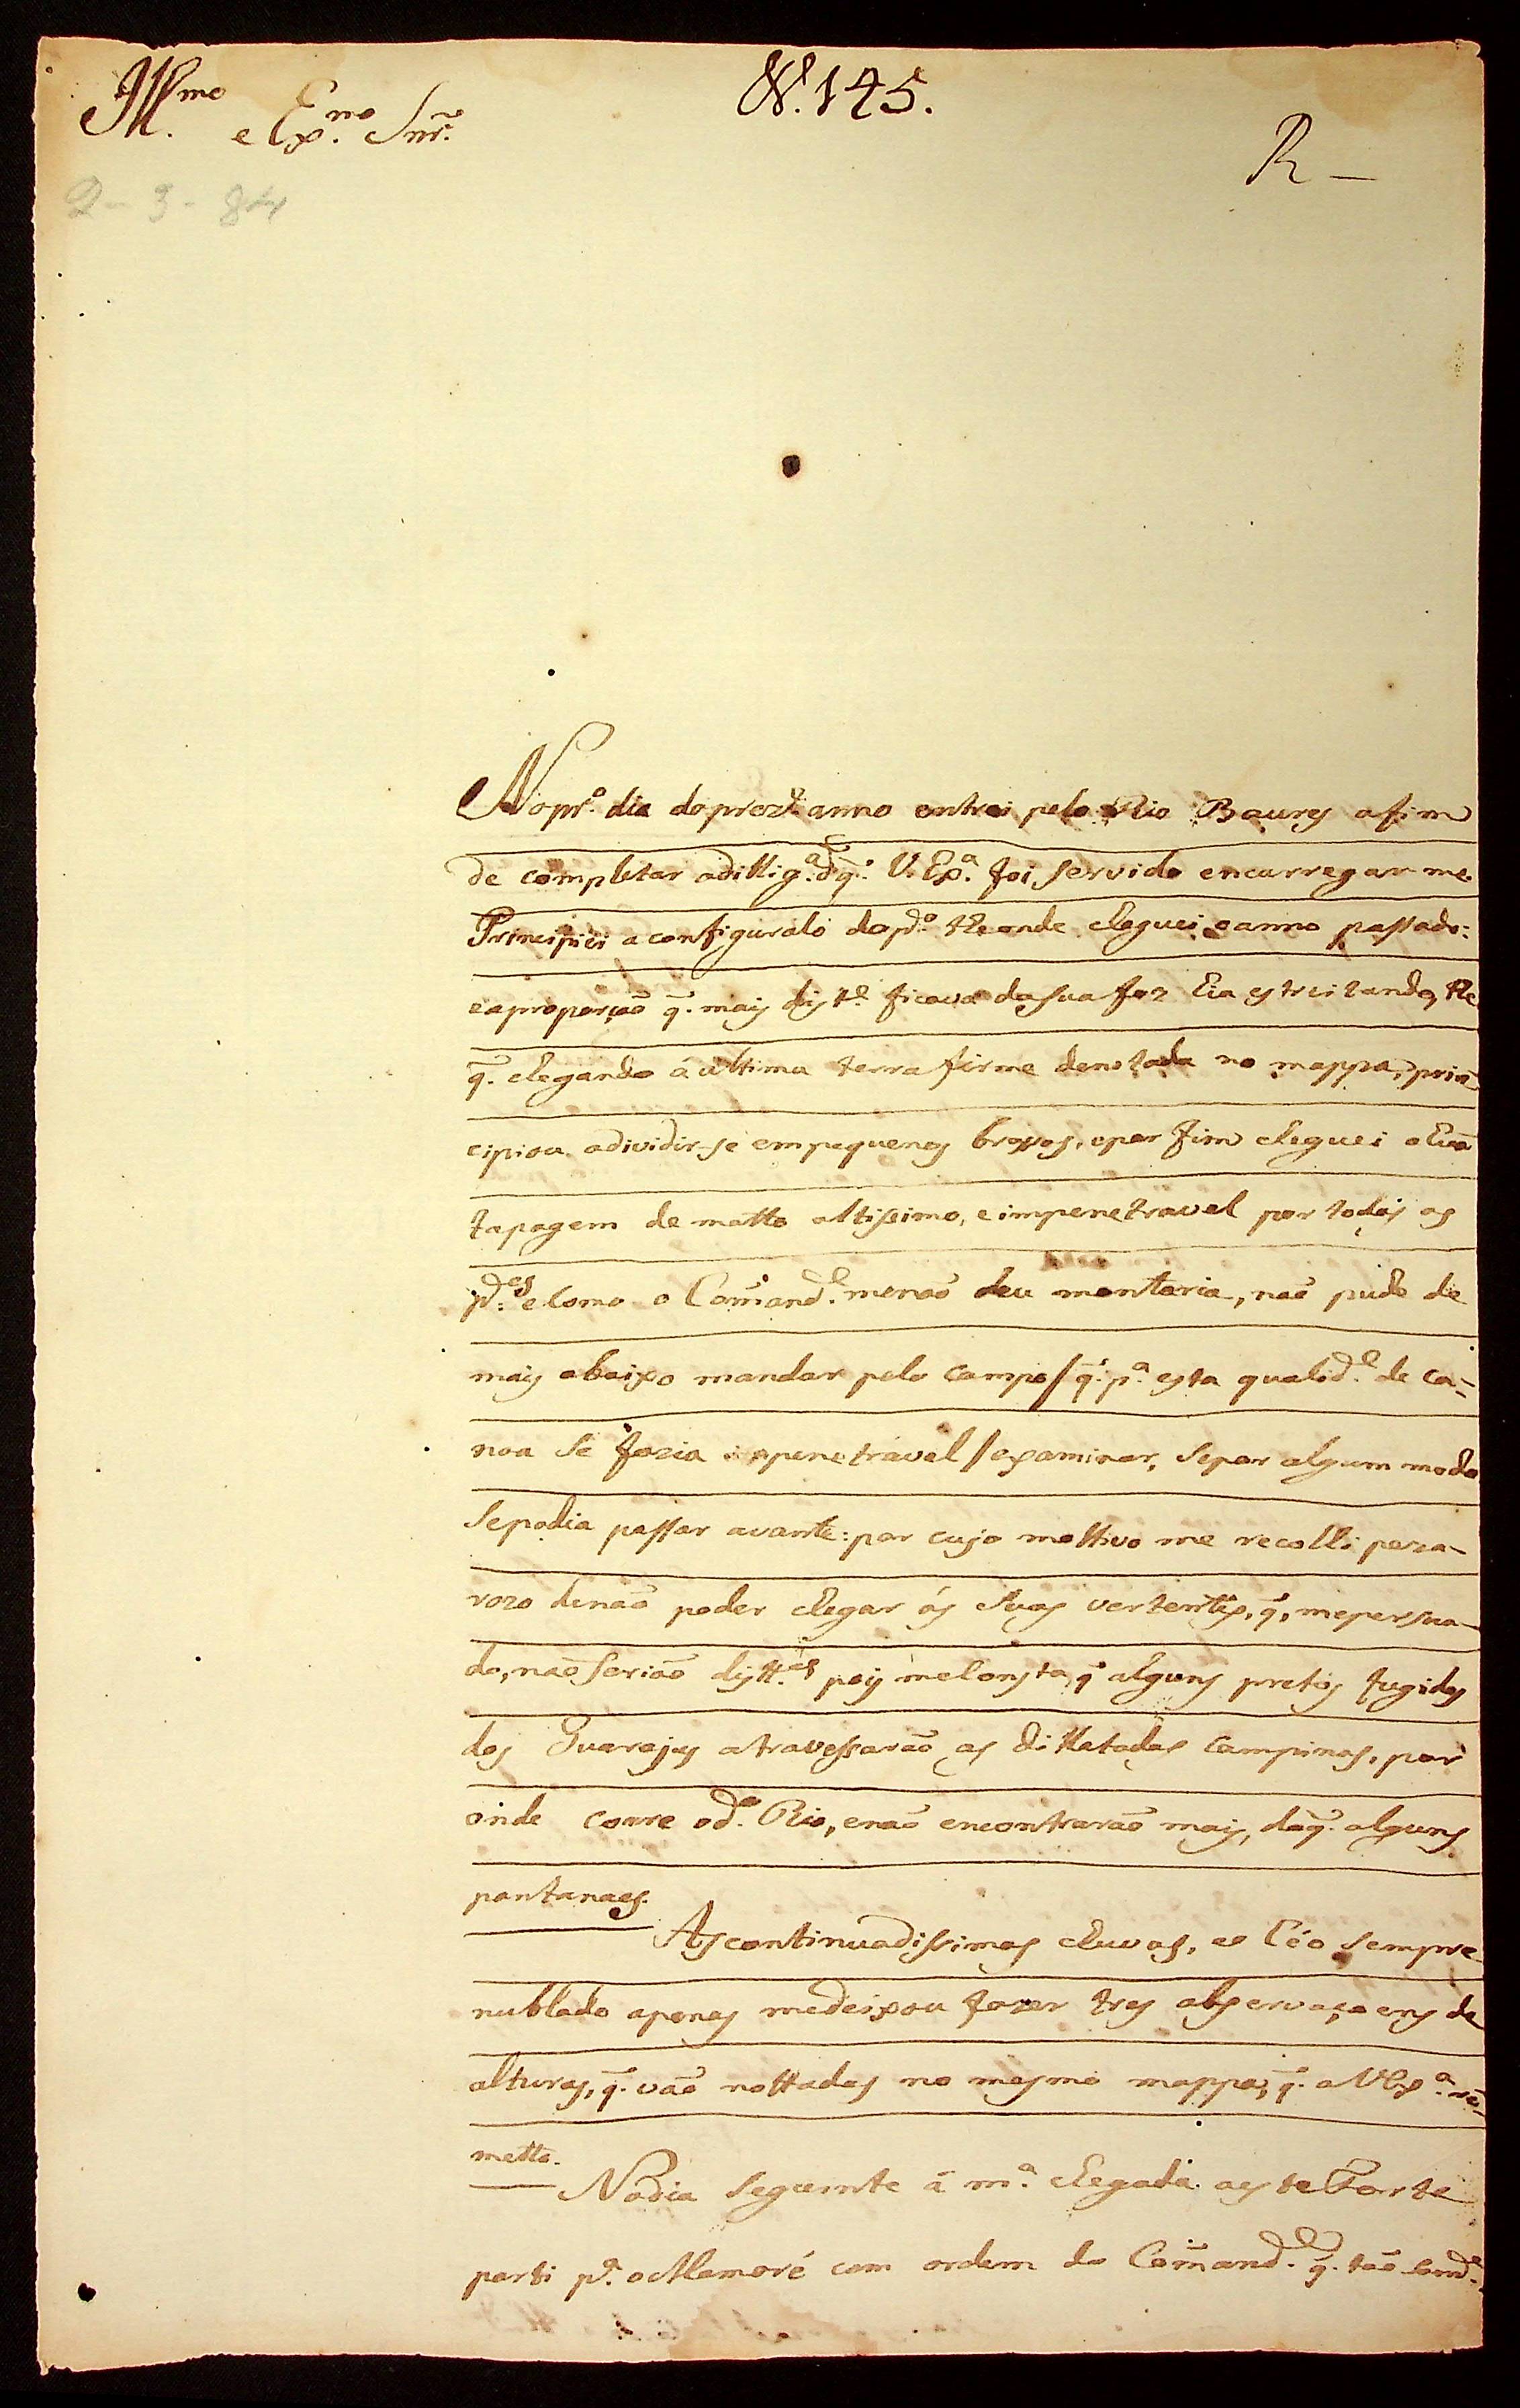 Ill.mo e Ex.mo Snr.
N.º 145.
R —
2-3-84
No pr.º dia do prez.e anno entrei pelo Rio Baures afim
de completar a dillig.ª de q̃. V. Ex.ª foi servido encarregar-me
Principiei a configuralo do p.º the onde cheguei o anno passado:
e a proporção q̃. mais dist.e ficava da sua foz hia estreitando, the
q̃. chegando á ultima terra firme denotada no mappa, prin-
cipiou a dividir-se em pequenos brassos, e por fim cheguei a huã
tapagem de matto altissimo, e impenetravel por todas as
p.es e como o Com̃and.e me não deu montaria, não pude de
mais abaixo mandar pelo campo / q̃. p.ª esta qualid.e de ca-
noa se fazia impenetravel / examinar, se por algum modo
se podia passar avante: por cujo mottivo me recolhi peza-
rozo de não poder chegar ás suas vertentes, q̃, me persua-
do, não serião distt.es pois me consta, q̃ alguns pretos fugidos
dos Guarajus atravessarão as dillatadas campinas, por
onde corre o d.º Rio, e não encontrarão mais, do q̃. alguns
pantanaes.
As continuadissimas chuvas, e o Céo sempre
nublado apenas me deixou fazer tres observaçoens de
alturas, q̃. vão nottadas no mesmo mappa, q̃. a V Ex.ª re-
metto.
No dia seguinte á m.ª chegada a este Forte
parti p.ª o Mamoré com ordem do Com̃and.e q̃. tão som.e